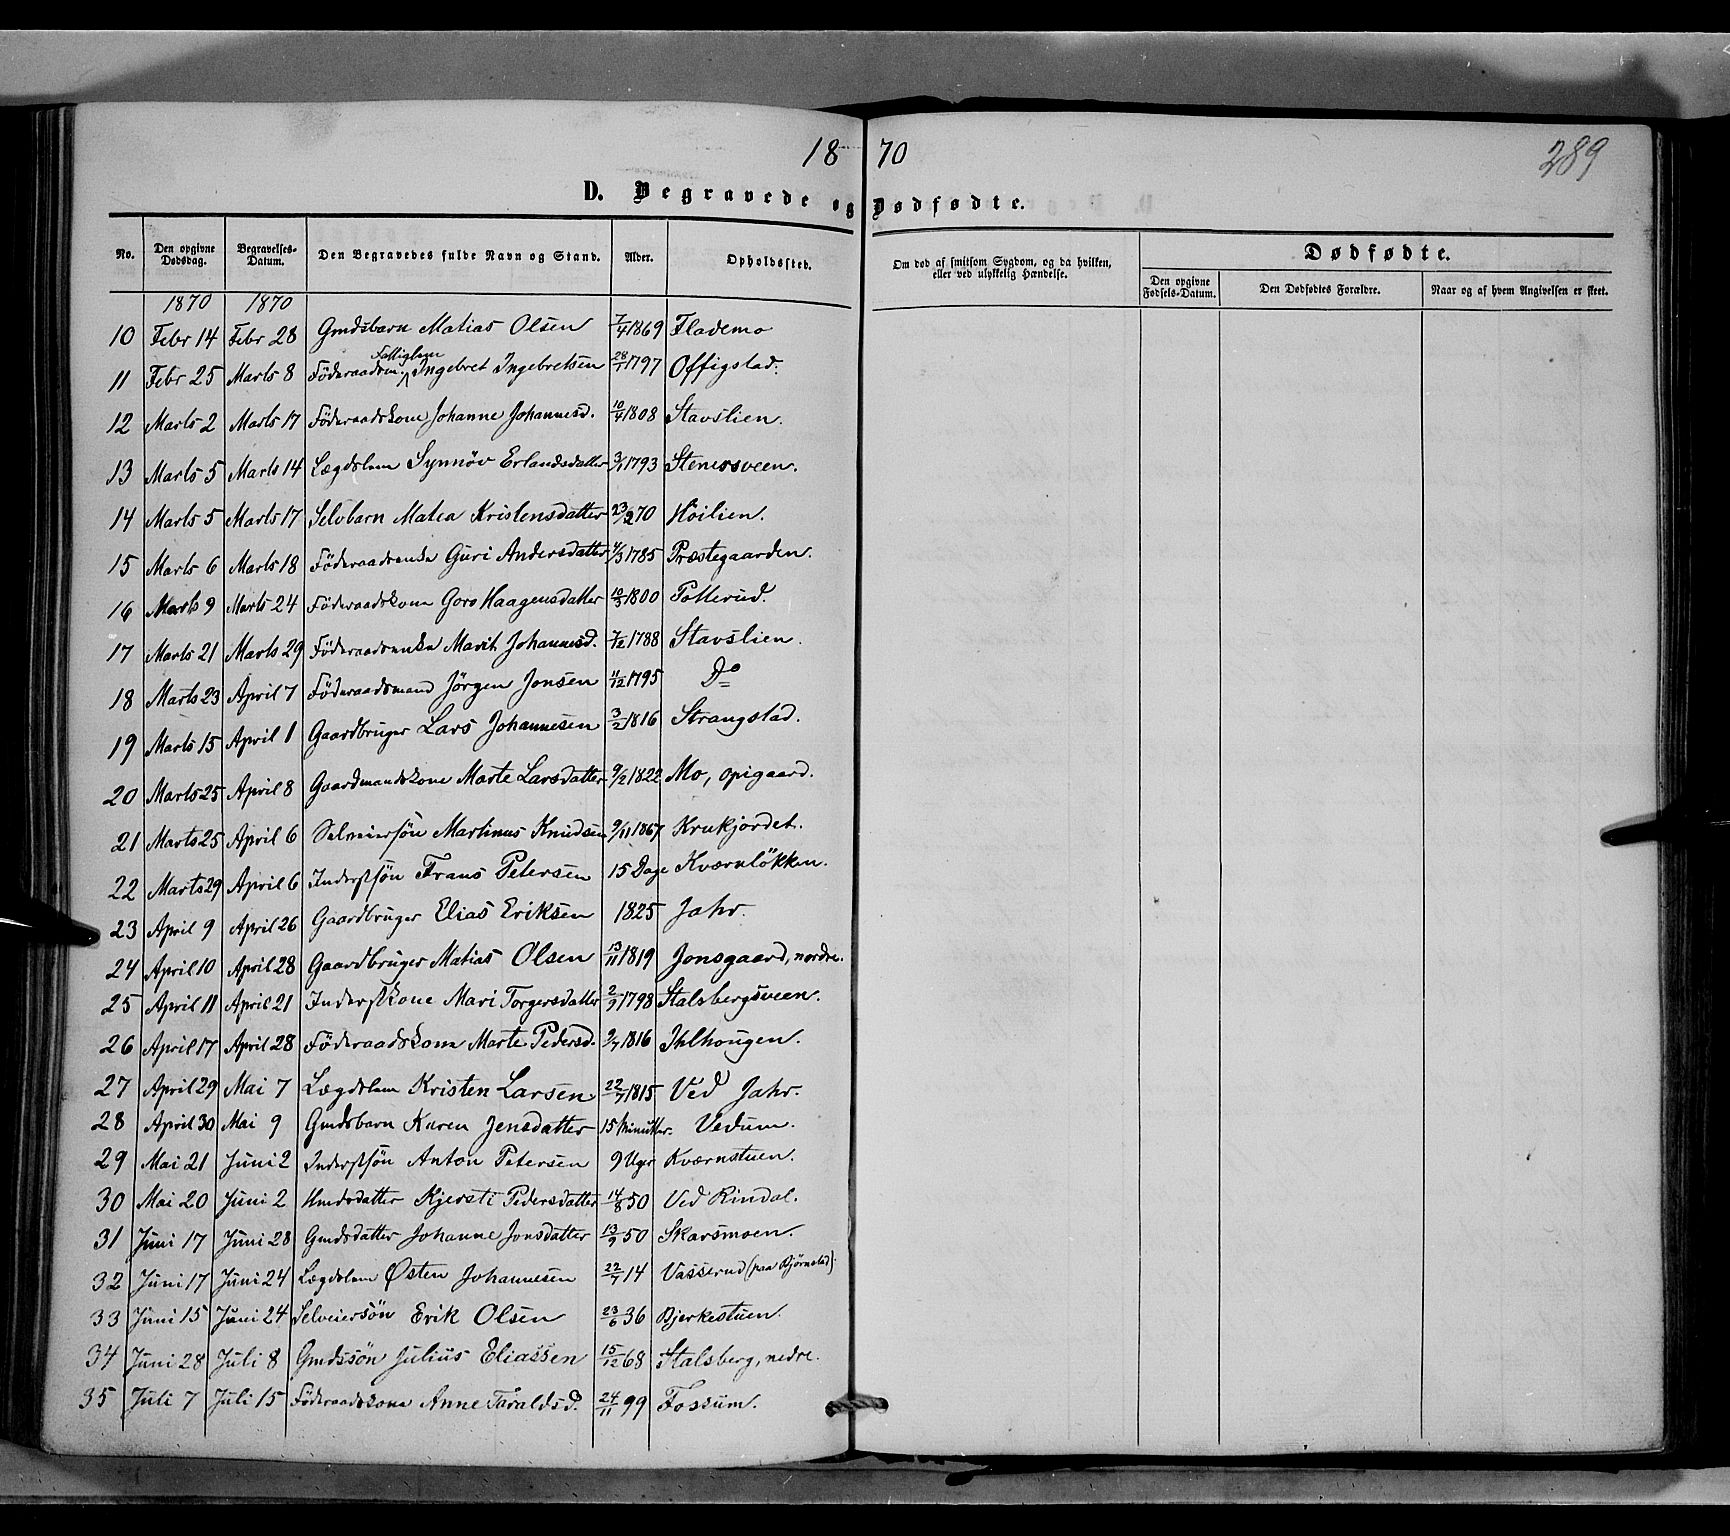 18 70
289
D. Begravede og Dødfødte.
No. Den opgivne Dødsdag. Begravelses-Datum. Den Begravedes fulde Navn og Stand. Alder. Opholdssted. Om død af smitsom Sygdom, og da hvilken, eller ved ulykkelig Hændelse. Dødfødte.
Den opgivne Fødsels-Datum. Den Dødfødtes Forældre. Naar og af hvem Angivelsen er skeet.
1870 1870
10 Febr 14 Febr 28 Gmdsbarn Matias Olsen 7/4 1869 Flademo
Fattiglem
11 Febr 25 Marts 8 Föderaadsm. Ingebret Ingebretsen 28/1 1797 Offigstad.
12 Marts 2 Marts 17 Föderaadskone Johanne Johannesd. 10/4 1808 Stavslien.
13 Marts 5 Marts 14 Lægdslem Synnöv Erlandsdatter 3/1 1793 Stenersveen.
14 Marts 5 Marts 17 Selvbarn Matea Kristensdatter 23/2 70 Höilien.
15 Marts 6 Marts 18 Föderaadsenke Guri Andersdatter 4/3 1785 Præstegaarden.
16 Marts 9 Marts 24 Föderaadskone Goro Haagensdatter 10/3 1800 Potterud.
17 Marts 21 Marts 29 Föderaadsenke Marit Johannesd. 7/12 1788 Stavslien.
18 Marts 23 April 7 Föderaadsmand Jörgen Jonsen 11/12 1795 Do
19 Marts 15 April 1 Gaardbruger Lars Johannesen 3/2 1816 Strangstad.
20 Marts 25 April 8 Gaardmandskone Marte Larsdatter 9/2 1822 Mo, opigaard.
21 Marts 25 April 6 Selveiersön Martinus Knudsen 9/11 1867 Krukjordet.
22 Marts 29 April 6 Inderstsön Frans Petersen 15 Dage Kværnlökken.
23 April 9 April 26 Gaardbruger Elias Eriksen 1825 Jahr.
24 April 10 April 28 Gaardbruger Matias Olsen 13/11 1819 Jonsgaard, nordre.
25 April 11 April 21 Inderstkone Mari Torgersdatter 2/9 1798 Stalsbergsveen.
26 April 17 April 28 Föderaadskone Marte Pedersd. 9/7 1816 Ihlhougen.
27 April 29 Mai 7 Lægdslem Kristen Larsen 22/7 1815 Ved Jahr.
28 April 30 Mai 9 Gmdsbarn Karen Jensdatter 15 Minutter. Vedum.
29 Mai 21 Juni 2 Inderstsön Anton Petersen 9 Uger Kværnstuen.
30 Mai 20 Juni 2 Hmdsdatter Kjersti Pedersdatter 14/8 50 Ved Rindal.
31 Juni 17 Juni 28 Gmdsdatter Johanne Jonsdatter 13/9 50 Skarsmoen.
32 Juni 17 Juni 24 Lægdslem Østen Johannesen 22/7 14 Vasserud (paa Bjørnstad).
33 Juni 15 Juni 24 Selveiersön Erik Olsen 23/6 36 Bjerkestuen.
34 Juni 28 Juli 8 Gmdssön Julius Eliassen 15/12 68 Stalsberg, nedre.
35 Juli 7 Juli 15 Föderaadskone Anne Taraldsd. 24/11 99 Fossum.